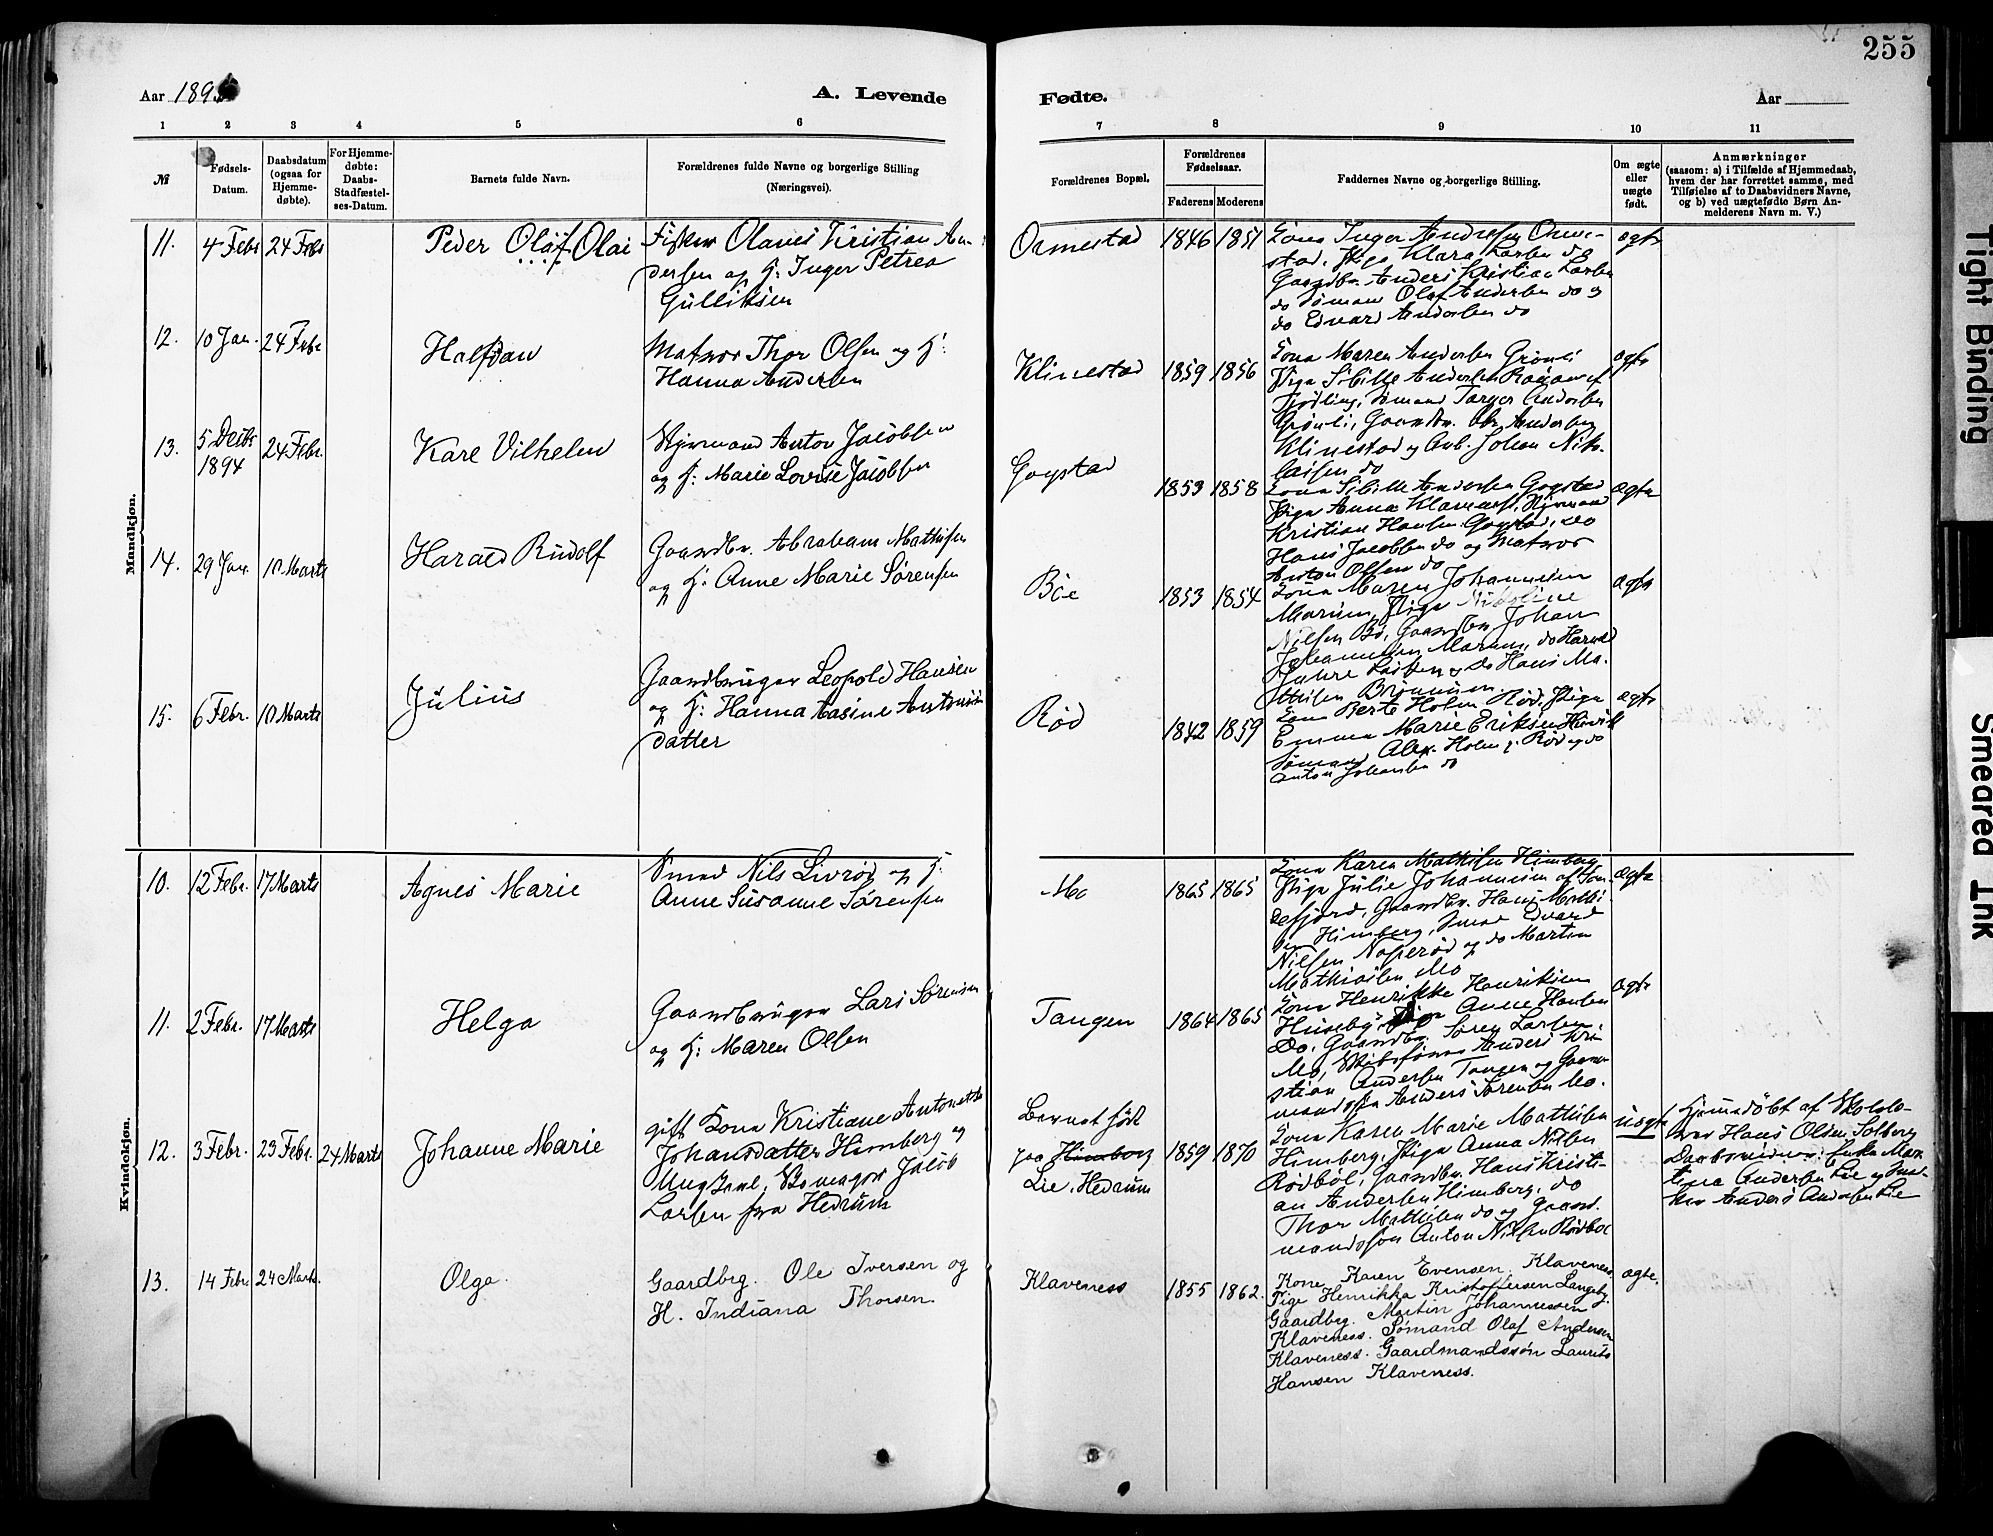 255
Aar 1895
A. Levende
Fødte.
Aar
1 2 3 4 5 6 7 8 9 10 11
№
Fødsels-
Datum.
Daabsdatum
(ogsaa for
Hjemme-
døbte).
For Hjemme-
døbte:
Daabs-
Stadfæstel-
ses-Datum.
Barnets fulde Navn.
Forældrenes fulde Navne og borgerlige Stilling
(Næringsvei).
Forældrenes Bopæl.
Forældrenes
Fødselsaar.
Faderens Moderens
Faddernes Navne og borgerlige Stilling.
Om ægte
eller
uægte
født.
Anmærkninger
(saasom: a) i Tilfælde af Hjemmedaab,
hvem der har forrettet samme, med
Tilføielse af to Daabsvidners Navne,
og b) ved uægtefødte Børn An-
melderens Navn m. V.)
Mandkjøn.
11. 4 Febr 24 Febr
Peder Olaf Olai
Fisker Olaves Kristian An-
dersen og H: Inger Petrea
Gulliksen
Ormestad
1846 1851
Kona Inger Andresen Orme-
stad, Pige Klara Larsen do
Gaardbr. Anders Kristian Larsen
do Sømand Olaf Andersen do og
do Edvard Andersen do
ægte
12. 10 Jan. 24 Febr
Halfdan
Matros Thor Olsen og H:
Hanna Andersen
Klinestad
1859 1856
Kona Maren Andersen Grønli
Pige Sibille Andersen
Sømand Torger Andersen
Grønli, Gaardbr. Andersen
Klinestad og Arb. Johan Niko-
laisen do
ægte
13. 5 Decbr 1894 24 Febr.
Kare Vilhelm
Styrmand Anton Jacobsen
og H: Marie Lovise Jacobsen
Gogstad
1853 1858
Kona Sibille Andersen Gogstad
Pige Anna Klavenes, Styrmand
Kristian Hansen Gogstad, do
Hans Jacobsen do og Matros
Anton Olsen do
ægte
14. 29 Jan. 10 Marts
Harald Rudolf
Gaardbr. Abraham Mathisen
og H: Anne Marie Sørensen
Bøe
1853 1854
Kona Maren Johannesen
Marum, Pige Nikoline
Nilsen Bø, Gaardbr. Johan
Johannesen Marum, do Harald
do Hans Ma-
thisen
ægte
15. 6 Febr. 10 Marts
Julius
Gaardbruger Leopold Hansen
og H: Hanna Aasine Antonis
datter
Rød
1842 1859
Kona Berte Holm Rød, Pige
Emma Marie Eriksen
Sømand Alex. Holm Rød og do
Anton Johansen do
ægte
Kvindekjøn.
10. 12 Febr. 17 Marts
Agnes Marie
Smed Nils Livrød og H:
Anne Susanne Sørensen
Mo
1865 1865
Kona Karen Mathisen Himberg
Pige Julie Johannesen af San-
defjord, Gaardbr. Hans Mathi-
sen Himberg, Smed Edvard
Nilsen Napperød og do Martin
Mathiasen Mo
ægte
11. 2 Febr. 17 Marts
Helga
Gaardbruger Lars Sørensen
og H: Maren Olsen
Tangen
1864 1865
Kona Henrikke Henriksen
Huseby, Pige Anne Hansen
Do, Gaardbr. Søren Larsen
Mo, Skibsfører Anders Kri-
stian Andersen Tangen og Gaard-
mandssøn Anders Sørensen Mo.
ægte
12. 3 Febr. 23 Febr. 24 Marts
Johanne Marie
gift Kona Kristiane Antonette
Johansdatter Himberg og
Ungkarl, Skomager Jacob
Larsen fra Hedrum
Barnet født
paa Himberg
Lie, Hedrum
1859 1870
Kona Karen Marie Mathisen
Himberg, Pige Anna Nilsen
Rødbøl, Gaardbr. Hans Kristi-
an Andersen Himberg, do
Thor Mathisen do og Gaard-
mandssøn Anton Nilsen Rødbøl
uægte
Hjemmedøbt af Skolelæ-
rer Hans Olsen Solberg
Daabsvidner: Enke Mar-
tina Andersen Lie og
Anders Andersen Lie
13. 14 Febr. 24 Marts.
Olga.
Gaardbrg. Ole Iversen og
H. Indiana Thorsen.
Klaveness
1855 1862.
Kone Karen Evensen, Klaveness,
Pige Henrikka Kristoffersen Langeby.
Gaardbrg. Martin Johannessen
Klaveness. Sømand Olaf Andersen
Klaveness. Gaardmandssøn Laurits
Hansen Klaveness.
ægte.
Tight Binding
Smeared Ink